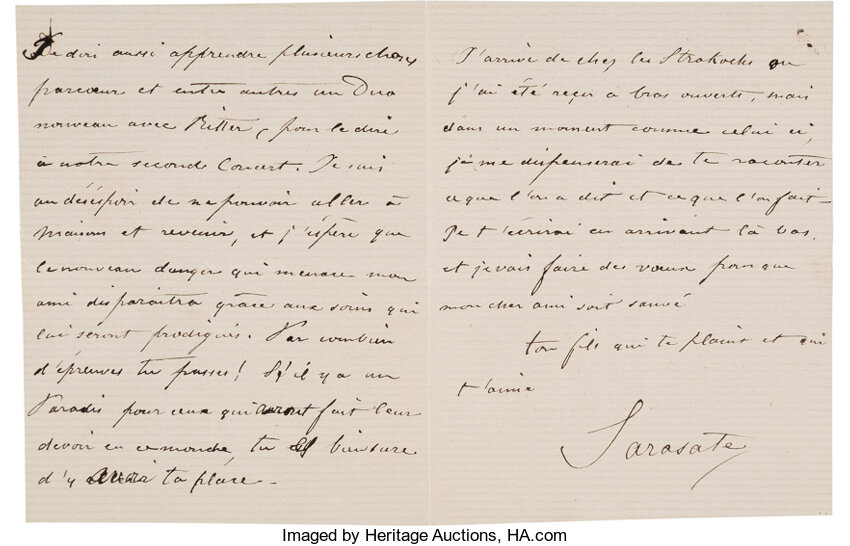 Je dois aussi apprendre plusieurs choses
par cœur et entre autres un Duo
nouveau avec Ritter, pour le dire
à notre second Concert. Je suis
au déséspoir de ne pouvoir aller à
Maisons et revenir, et j'éspère que
le nouveau danger qui menace mon
ami disparaitra grâce aux soins qui
lui séront prodigués. Par combien
d'épreuves tu passes! S'il y a un
Paradis pour ceux qui auront fait leur
devoir en ce monde, tu es bien sure
d'y avoir ta place.
J'arrive de chez les Strakosch où
j'ai été reçu à bras ouverts, mais
dans un moment comme celui ci,
je me dispenserai de te raconter
ce que l'on a dit et ce que l'on fait.
Je t'écrirai en arrivant là bas,
et je vais faire des vœux pour que
mon cher ami soit sauvé
ton fils qui te plaint et qui
t'aime
Sarasate
Imaged by Heritage Auctions, HA.com